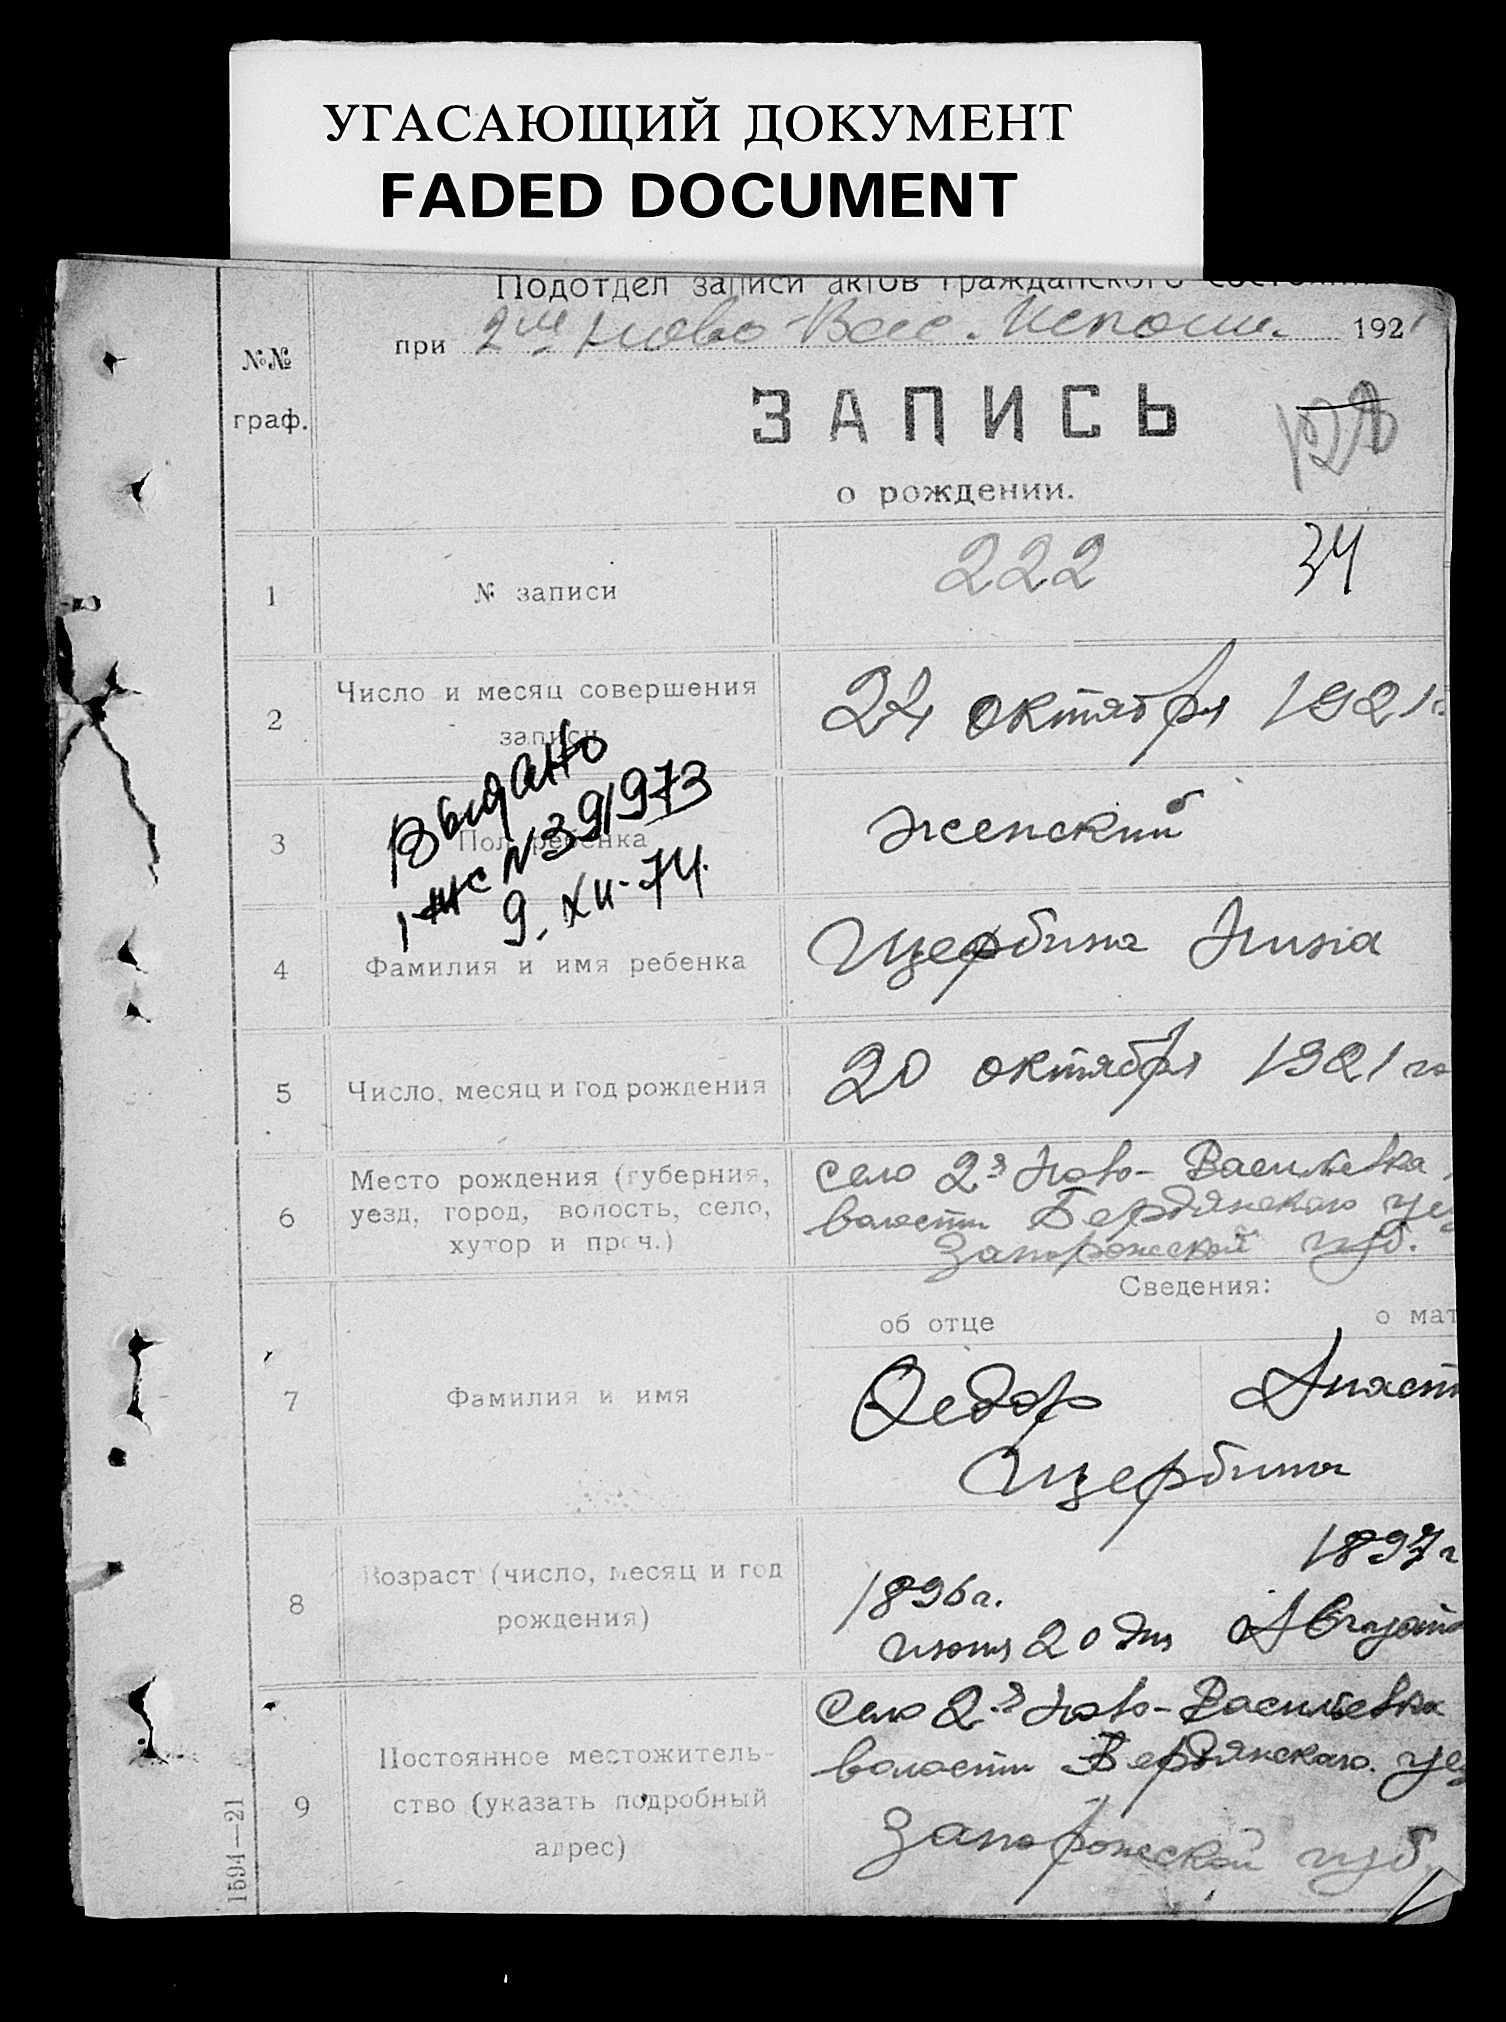 УГАСАЮЩИЙ ДОКУМЕНТ
FADED DOCUMENT
Подотдел записи актов гражданского
при 2м Ново-Вас. Исполк. 192
№№
граф.
ЗАПИСЬ
о рождении.
1 № записи 222 34
2 Число и месяц совершения записи 24 октября 1921
Выдано
1-жс №391973
9. XII-74.
3 Пол ребенка женский
4 Фамилия и имя ребенка Щербина
5 Число, месяц и год рождения 20 октября 1921 го
6 Место рождения (губерния, село 2я Ново-Васильевка
уезд, город, волость, село, волости Бердянского уез
хутор и проч.) Запорожской губ.
Сведения:
об отце о мат
7 Фамилия и имя Федор Анаст
Щербина
8 Возраст (число, месяц и год 1896г. 1897г
рождения) июня 20 дня Августа
9 Постоянное местожитель- село 2я Ново-Васильевка
ство (указать подробный волости Бердянского уез
адрес) Запорожской губ.
1594—21